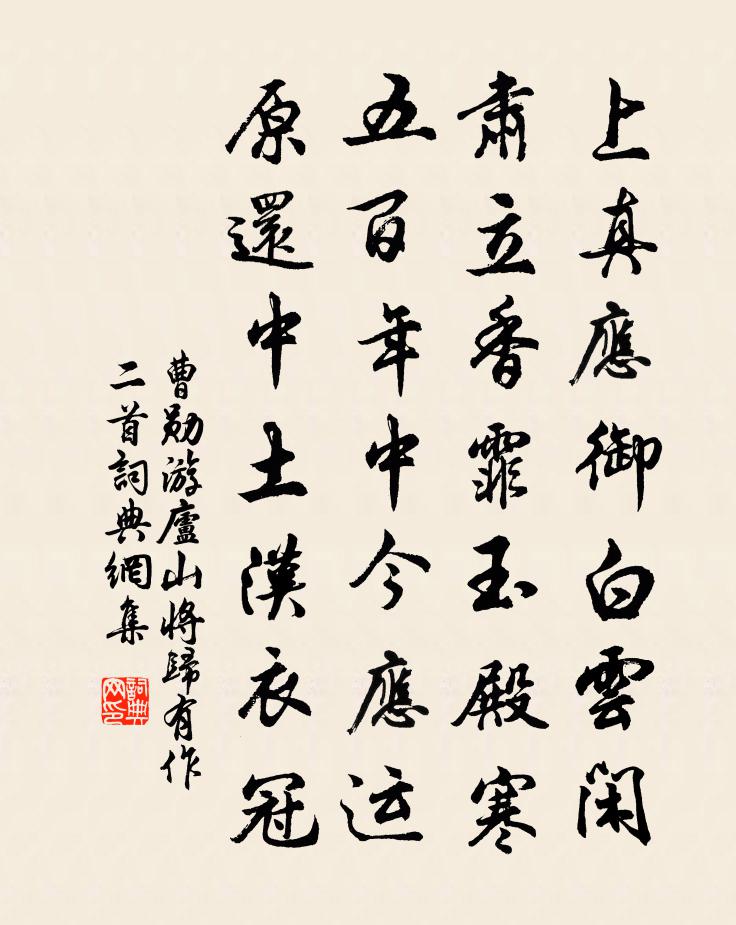 上真應御白雲閑
肅立香霏玉殿寒
五百年中今應运
原還中土漢衣冠
曹勛游廬山將歸有作
二首詞典網集
詞典网印